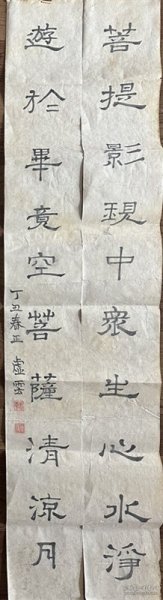 菩提影現中衆生心水淨
遊於畢竟空菩薩清凉月
丁丑春正 虛雲